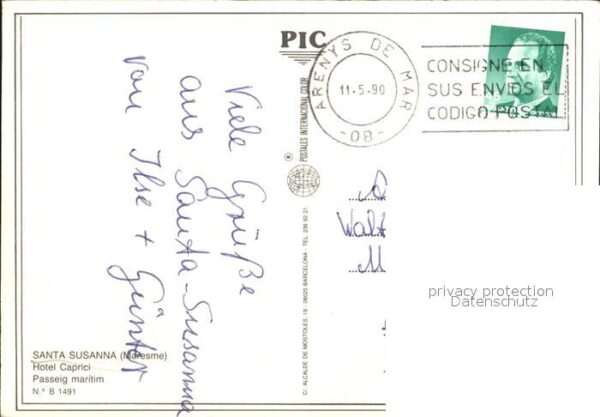 PIC
ARENYS DE MAR
11-5-90
-08-
CONSIGNE EN
SUS ENVIOS EL
CODIGO POSTAL
Viele Grüße
aus Santa-Susanna
von Ilse + Günter
POSTALES INTERNACIONAL COLOR
C/ ALCALDE DE MOSTOLES, 19 - 08025 BARCELONA - TEL. 236 92 21
Walt
M
privacy protection
Datenschutz
SANTA SUSANNA (Maresme)
Hotel Caprici
Passeig marítim
N.º B 1491